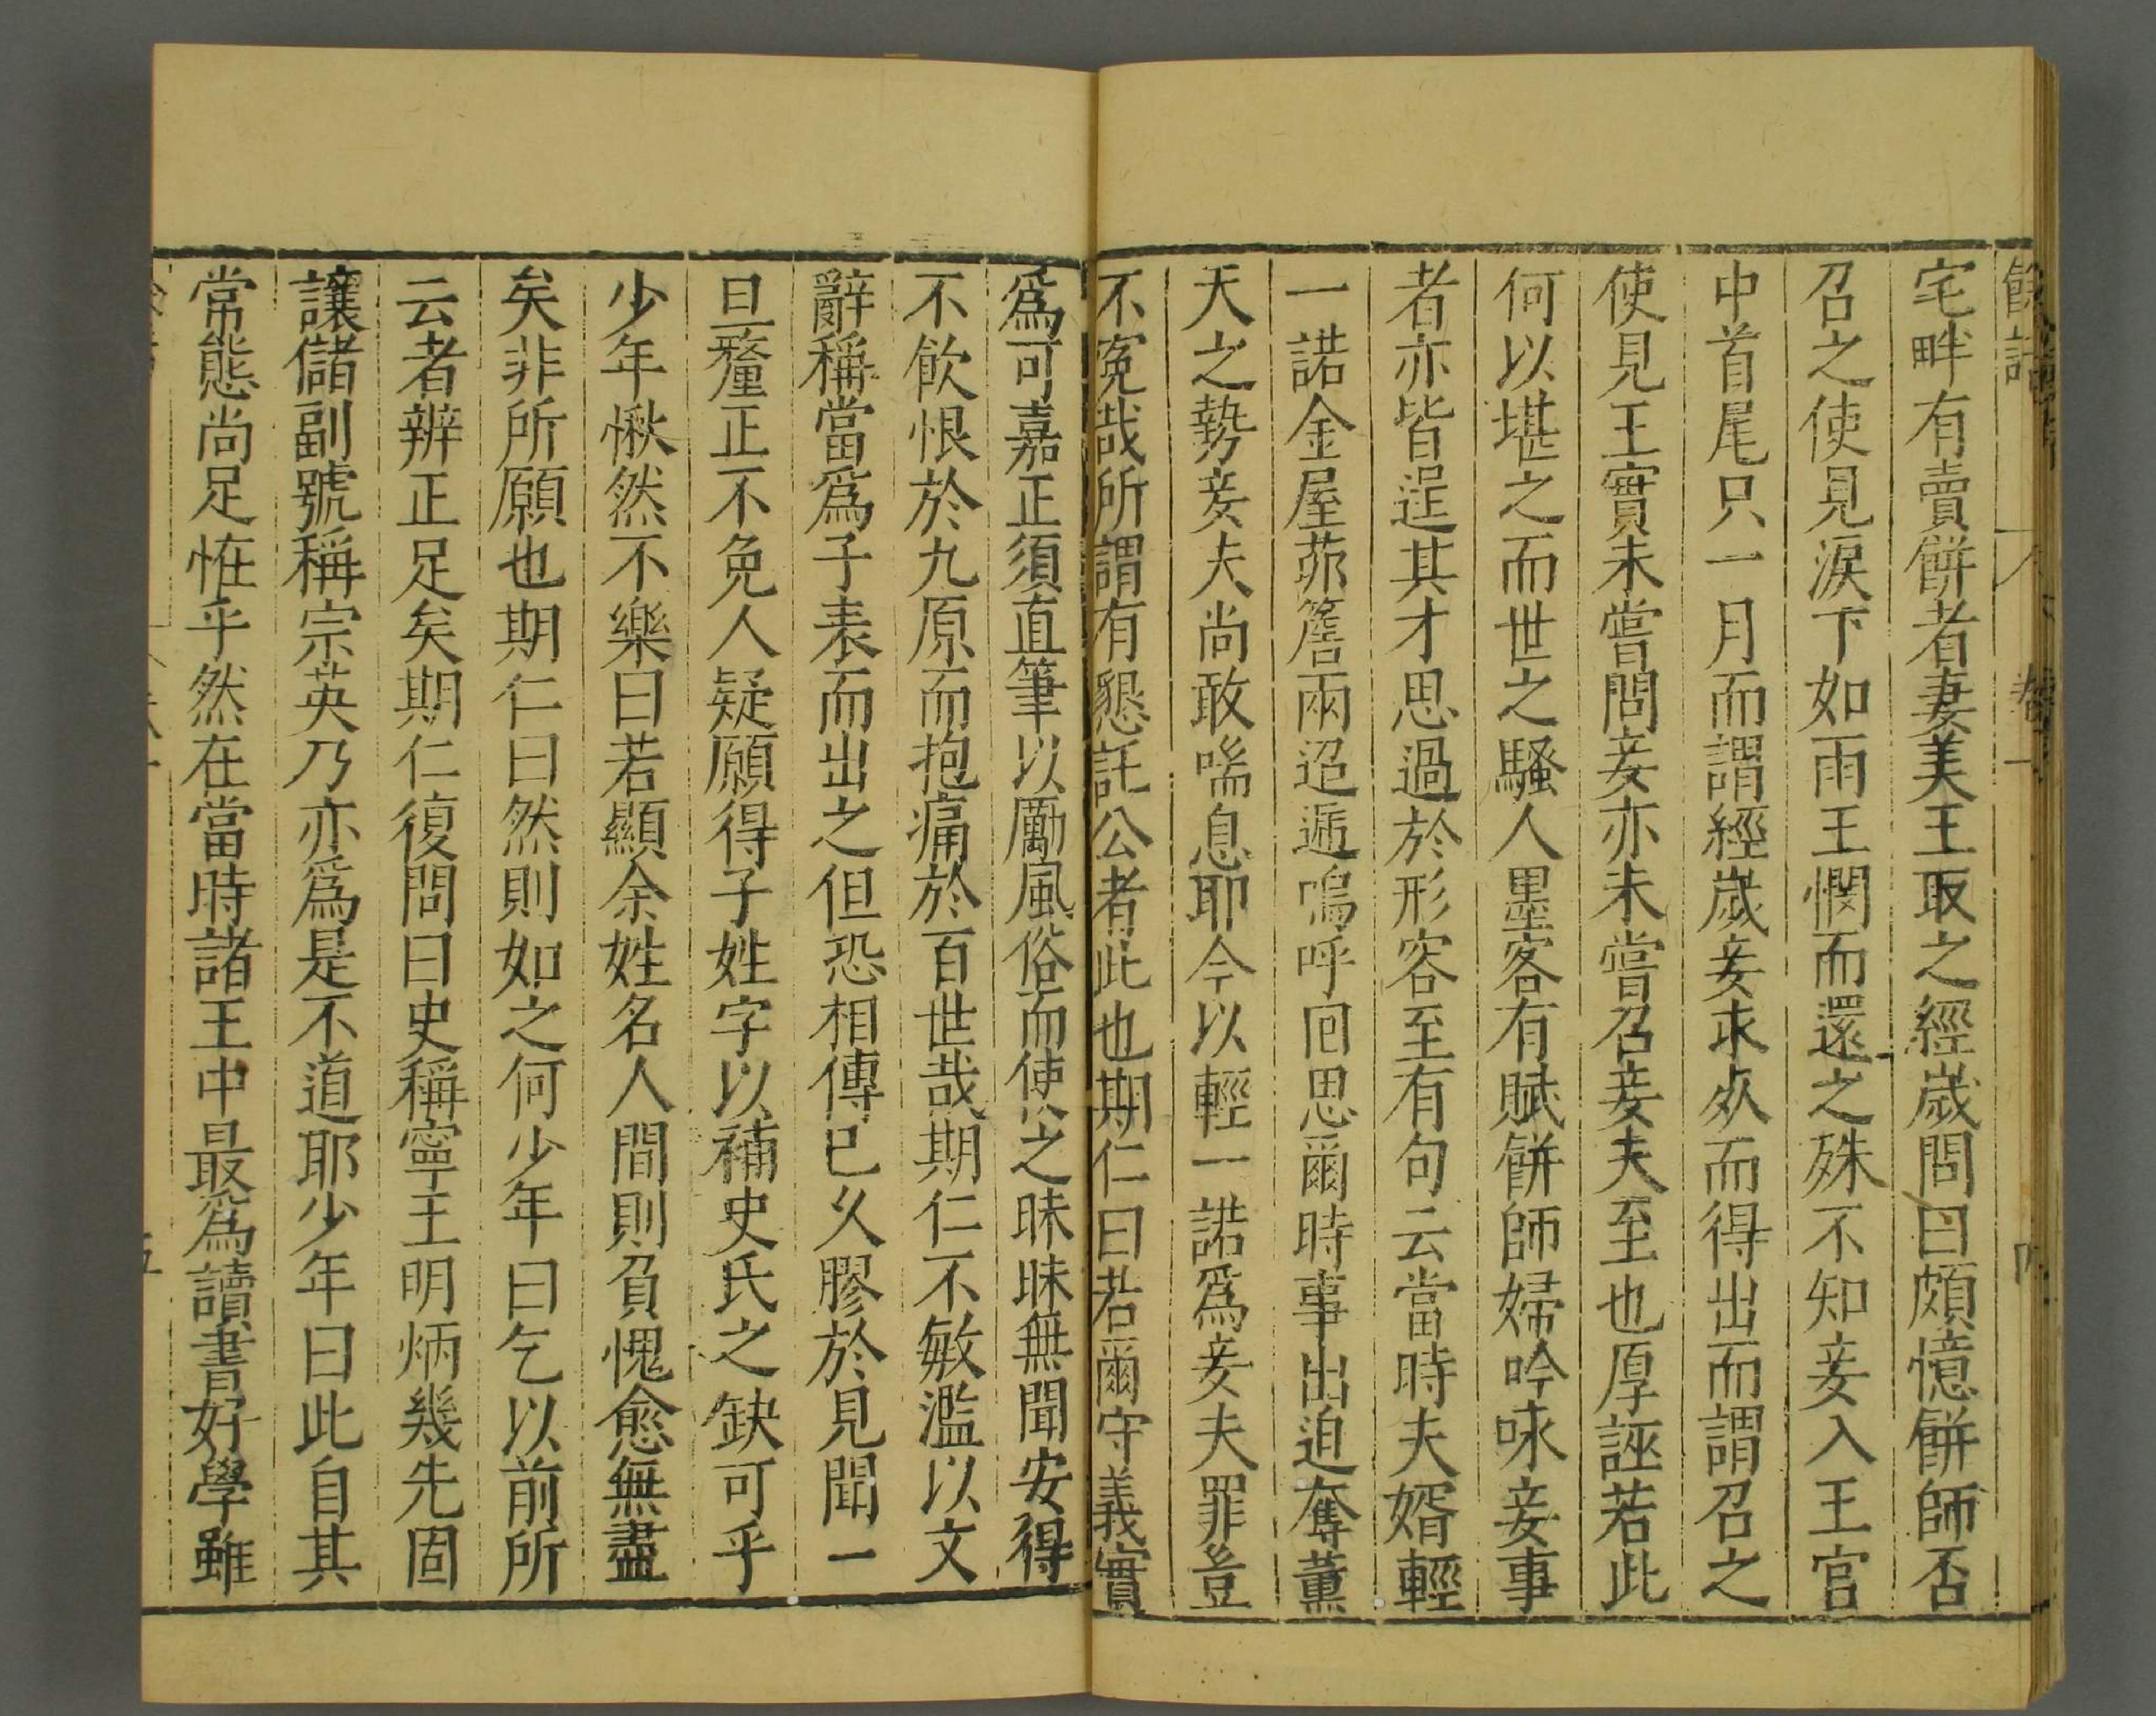 宅畔有賣餅者妻美王取之經歲問曰頗憶餅師否
召之使見淚下如雨王憫而還之殊不知妾入王宫
中首尾只一月而謂經歲妾求𠅤而得出而謂召之
使見王實未嘗問妾亦未嘗召妾夫至也厚誣若此
何以堪之而世之騷人墨客有賦餅師婦吟咏妾事
者亦皆逞其才思過於形容至有句云當時夫婿輕
一諾金屋茆簷兩迢遞嗚呼囘思爾時事出迫奪薫
天之勢妾夫尚敢喘息耶今以輕一諾爲妾夫罪豈
不寃哉所謂有懇託公者此也期仁曰若爾守義實
爲可嘉正須直筆以勵風俗而使之昧昧無聞安得
不飲恨於九原而抱痛於百世哉期仁不敏濫以文
辭稱當爲子表而出之但恐相傳已久膠於見聞一
旦釐正不免人疑願得子姓字以補史氏之缺可乎
少年愀然不樂曰若顯余姓名人間則負愧愈無盡
矣非所願也期仁曰然則如之何少年曰乞以前所
云者辨正足矣期仁復問曰史稱寧王明炳幾先固
讓儲副號稱宗英乃亦爲是不道耶少年曰此自其
常態尚足恠乎然在當時諸王中最爲讀書好學雖